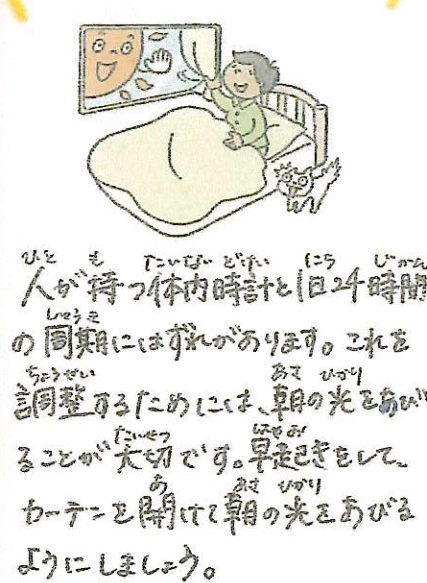 人が持つ体内時計と1日24時間
の周期にはずれがあります。これを
調整するためには、朝の光をあび
ることが大切です。早起きをして、
カーテンを開けて朝の光をあびる
ようにしましょう。